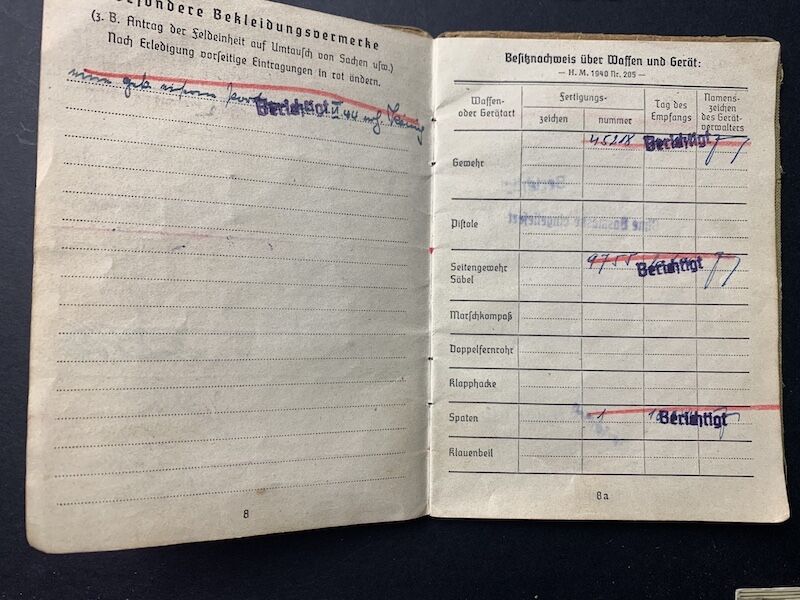 esondere Bekleidungsvermerke
(z. B. Antrag der Feldeinheit auf Umtausch von Sachen usw.)
Nach Erledigung vorseitige Eintragungen in rot ändern.
Berichtigt
8
Besitznachweis über Waffen und Gerät:
— H. M. 1940 Nr. 205 —
Waffen- oder Gerätart
Fertigungs-
zeichen
nummer
Tag des Empfangs
Namens- zeichen des Gerät- verwalters
Gewehr
45218 Berichtigt
Pistole
Seitengewehr
Säbel
9755 Berichtigt
Marschkompaß
Doppelfernrohr
Klapphacke
Spaten
1 Berichtigt
Klauenbeil
8a